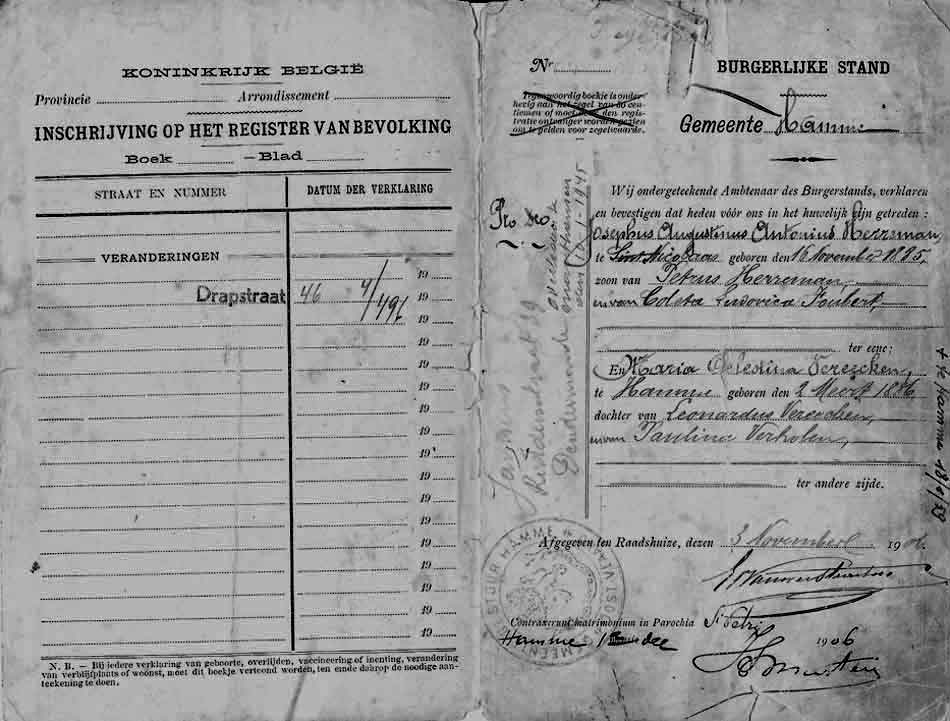 KONINKRIJK BELGIË
Provincie Arrondissement
INSCHRIJVING OP HET REGISTER VAN BEVOLKING
Boek —Blad
STRAAT EN NUMMER DATUM DER VERKLARING
VERANDERINGEN
19
Drapstraat 46 19
19
19
19
19
19
19
19
19
19
19
19
19
19
19
19
N. B. — Bij iedere verklaring van geboorte, overlijden, vaccineering of inenting, verandering
van verblijfplaats of woonst, moet dit boekje vertoond worden, ten einde daarop de noodige aan-
teekening te doen.
Nr
Tegenwoordig boekje is onder-
hevig aan het zegel van 50 cen-
tiemen of moet door den regis-
tratie ontvanger worden gezien
om te gelden voor zegelwaarde.
Pro
overleden
Dendermonde
1-1945
BURGERLIJKE STAND
Gemeente Hamme
Wij ondergeteekende Ambtenaar des Burgerstands, verklaren
en bevestigen dat heden vóór ons in het huwelijk zijn getreden :
Josephus Augustinus Antonius Herreman,
te Sint Nicolaas geboren den 16 November 1885,
zoon van Petrus Herreman,
en van Coleta Ludovica Foubert,
ter eene;
En Maria Celestina Vereecken,
te Hamme geboren den 2 Meert 1886,
dochter van Leonardus Vereecken,
en van Paulina Verholen,
ter andere zijde.
Afgegeven ten Raadshuize, dezen 3 November 1906.
Contraxerunt matrimonium in Parochia St Petri
Hamme 1906
+ te Hamme
HAMME